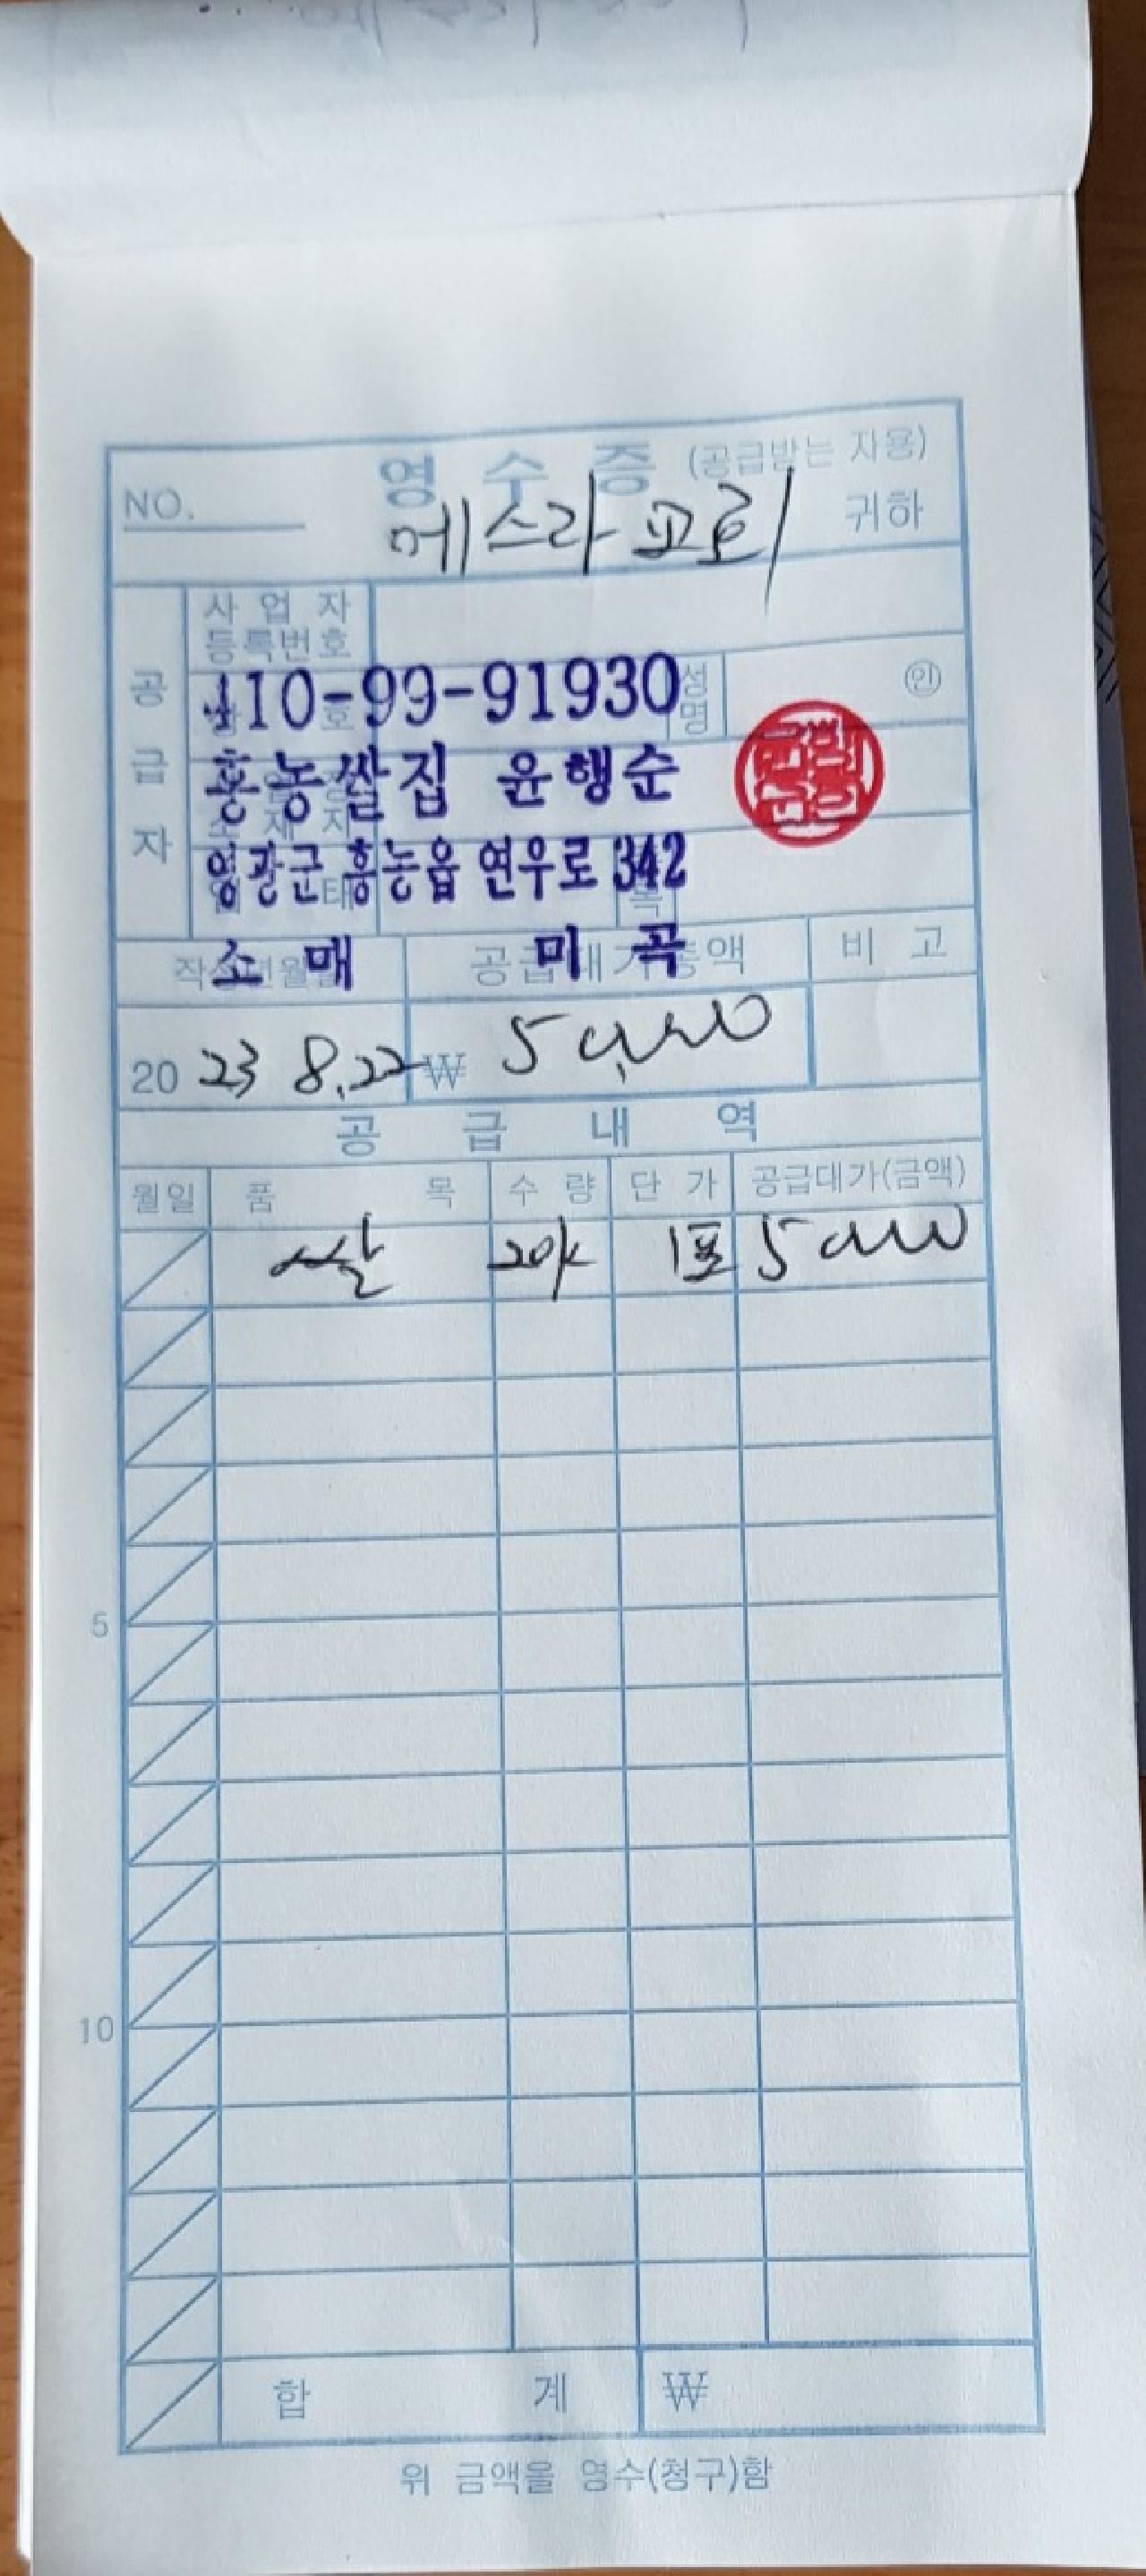 영 수 증 (공급받는 자용)
NO.
메스라교회 귀하
공급자
사 업 자
등록번호
410-99-91930
성명
인
홍농쌀집 윤행순
영광군 홍농읍 연우로 342
소 매 미 곡
비 고
20 23 8.22 ₩ 50,000
공 급 내 역
월일 품 목 수 량 단 가 공급대가(금액)
쌀 20k 1포 50000
5
10
합 계 ₩
위 금액을 영수(청구)함